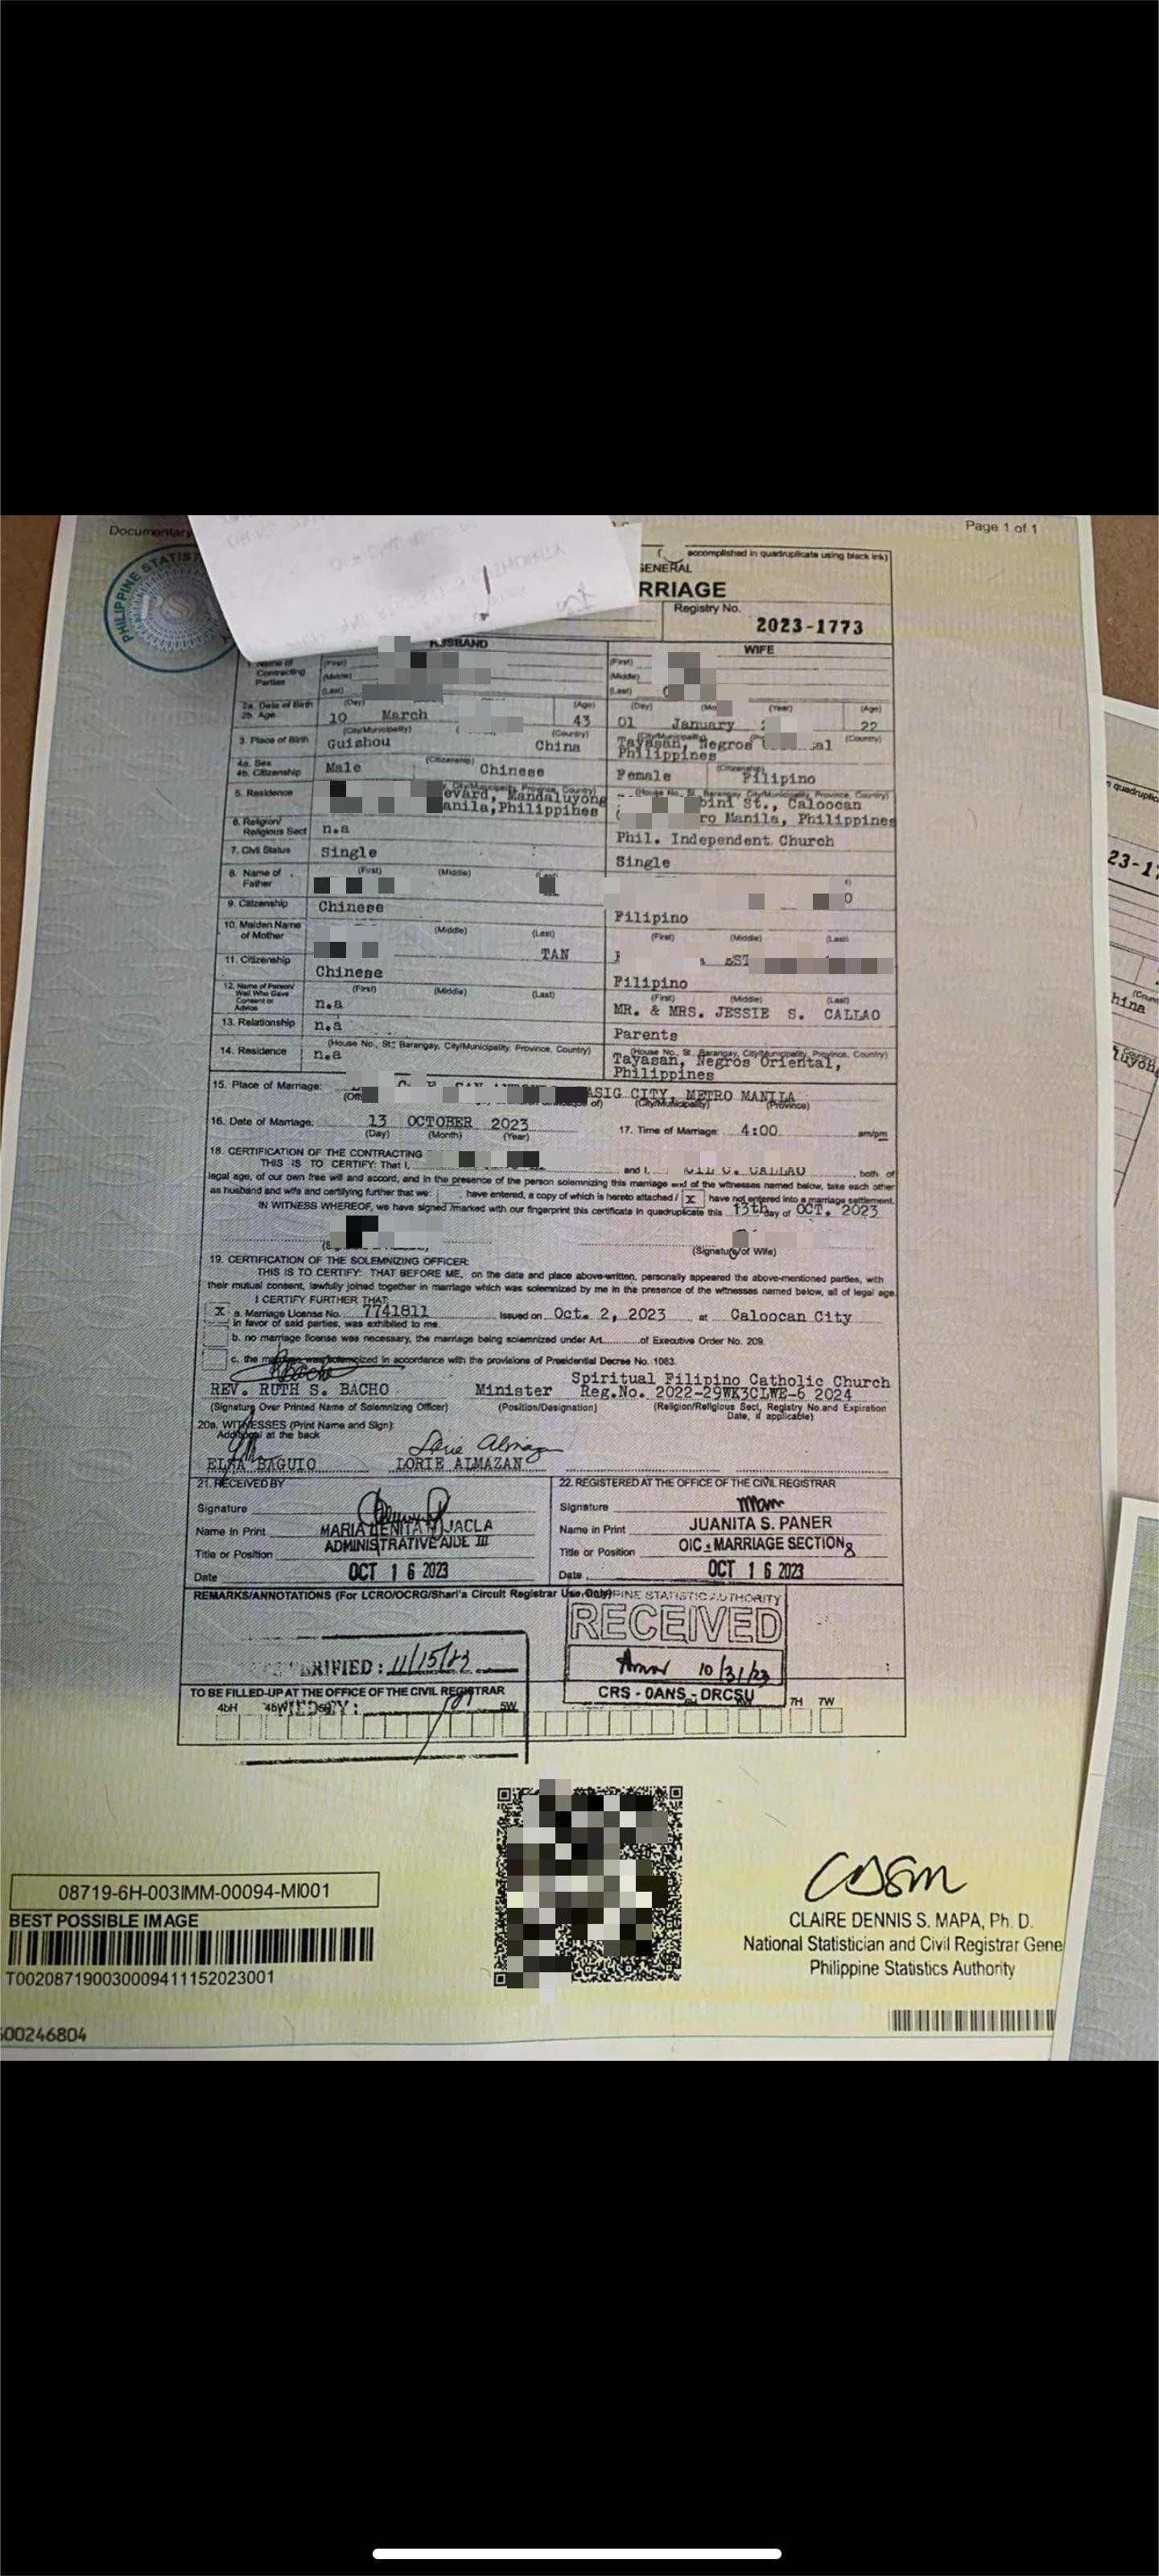 Documentary
Page 1 of 1
accomplished in quadruplicate using black ink)
GENERAL
RRIAGE
PHILIPPINE STATIST
Registry No.
2023-1773
HUSBAND
WIFE
1. Name of Contracting Parties
(First)
(Middle)
(Last)
(First)
(Middle)
(Last)
2a. Date of Birth
2b. Age
(Day)
(Age)
(Day)
(Year)
(Age)
10 March 43
01 January 22
3. Place of Birth
(City/Municipality)
(Country)
Guizhou China
(City/Municipality)
(Country)
Tayasan, Negros
Philippines
4a. Sex
4b. Citizenship
Male
(Citizenship)
Chinese
Female
(Citizenship)
Filipino
5. Residence
City/Municipality, Province, Country)
evard, Mandaluyong
anila,Philippines
(House No., St., Barangay, City/Municipality, Province, Country)
bini St., Caloocan
ro Manila, Philippines
6. Religion/
Religious Sect
n.a
Phil. Independent Church
7. Civil Status
Single
Single
8. Name of Father
(First)
(Middle)
9. Citizenship
Chinese
Filipino
10. Maiden Name of Mother
(Middle)
(Last)
TAN
(First)
(Middle)
(Last)
11. Citizenship
Chinese
Filipino
12. Name of Person/
Wali Who Gave
Consent or
Advice
(First)
(Middle)
(Last)
n.a
(First)
(Middle)
(Last)
MR. & MRS. JESSIE S. CALLAO
13. Relationship
n.a
Parents
14. Residence
(House No., St., Barangay, City/Municipality, Province, Country)
n.a
(House No., St., Barangay, City/Municipality, Province, Country)
Tayasan, Negros Oriental,
Philippines
15. Place of Marriage:
ASIG CITY, METRO MANILA
(City/Municipality)
(Province)
16. Date of Marriage:
13 OCTOBER 2023
(Day) (Month) (Year)
17. Time of Marriage: 4:00 am/pm
18. CERTIFICATION OF THE CONTRACTING
THIS IS TO CERTIFY: That I, and I, C. CALLAO, both of
legal age, of our own free will and accord, and in the presence of the person solemnizing this marriage and of the witnesses named below, take each other
as husband and wife and certifying further that we: have entered, a copy of which is hereto attached / x have not entered into a marriage settlement.
IN WITNESS WHEREOF, we have signed /marked with our fingerprint this certificate in quadruplicate this 13th day of OCT. 2023
(Signature of Wife)
19. CERTIFICATION OF THE SOLEMNIZING OFFICER:
THIS IS TO CERTIFY: THAT BEFORE ME, on the date and place above-written, personally appeared the above-mentioned parties, with
their mutual consent, lawfully joined together in marriage which was solemnized by me in the presence of the witnesses named below, all of legal age.
I CERTIFY FURTHER THAT:
X a. Marriage License No. 7741811 issued on Oct. 2, 2023 at Caloocan City
in favor of said parties, was exhibited to me.
b. no marriage license was necessary, the marriage being solemnized under Art. of Executive Order No. 209.
c. the marriage was solemnized in accordance with the provisions of Presidential Decree No. 1083.
Spiritual Filipino Catholic Church
REV. RUTH S. BACHO Minister Reg.No. 2022-29WK3CLWE-6 2024
(Signature Over Printed Name of Solemnizing Officer) (Position/Designation) (Religion/Religious Sect, Registry No.and Expiration
Date, if applicable)
20a. WITNESSES (Print Name and Sign):
Additional at the back
Lorie Almazan
ELSA BAGUIO LORIE ALMAZAN
21. RECEIVED BY
22. REGISTERED AT THE OFFICE OF THE CIVIL REGISTRAR
Signature
Signature
Name in Print
JACLA
Name in Print JUANITA S. PANER
Title or Position ADMINISTRATIVE AIDE III
Title or Position OIC - MARRIAGE SECTION
Date OCT 16 2023
Date OCT 16 2023
REMARKS/ANNOTATIONS (For LCRO/OCRG/Shari'a Circuit Registrar Use Only)
PINE STATISTIC AUTHORITY
RECEIVED
10/31/23
CRS - OANS - DRCSU
RIFIED : 11/15/23
TO BE FILLED-UP AT THE OFFICE OF THE CIVIL REGISTRAR
4bH
5W
7H 7W
08719-6H-003IMM-00094-MI001
BEST POSSIBLE IMAGE
T002087190030009411152023001
CLAIRE DENNIS S. MAPA, Ph. D.
National Statistician and Civil Registrar Gene
Philippine Statistics Authority
00246804
n quadruplic
23-1
hina
luyon